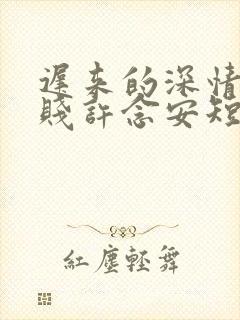 遲來的深情
賤許念安短
紅塵輕舞